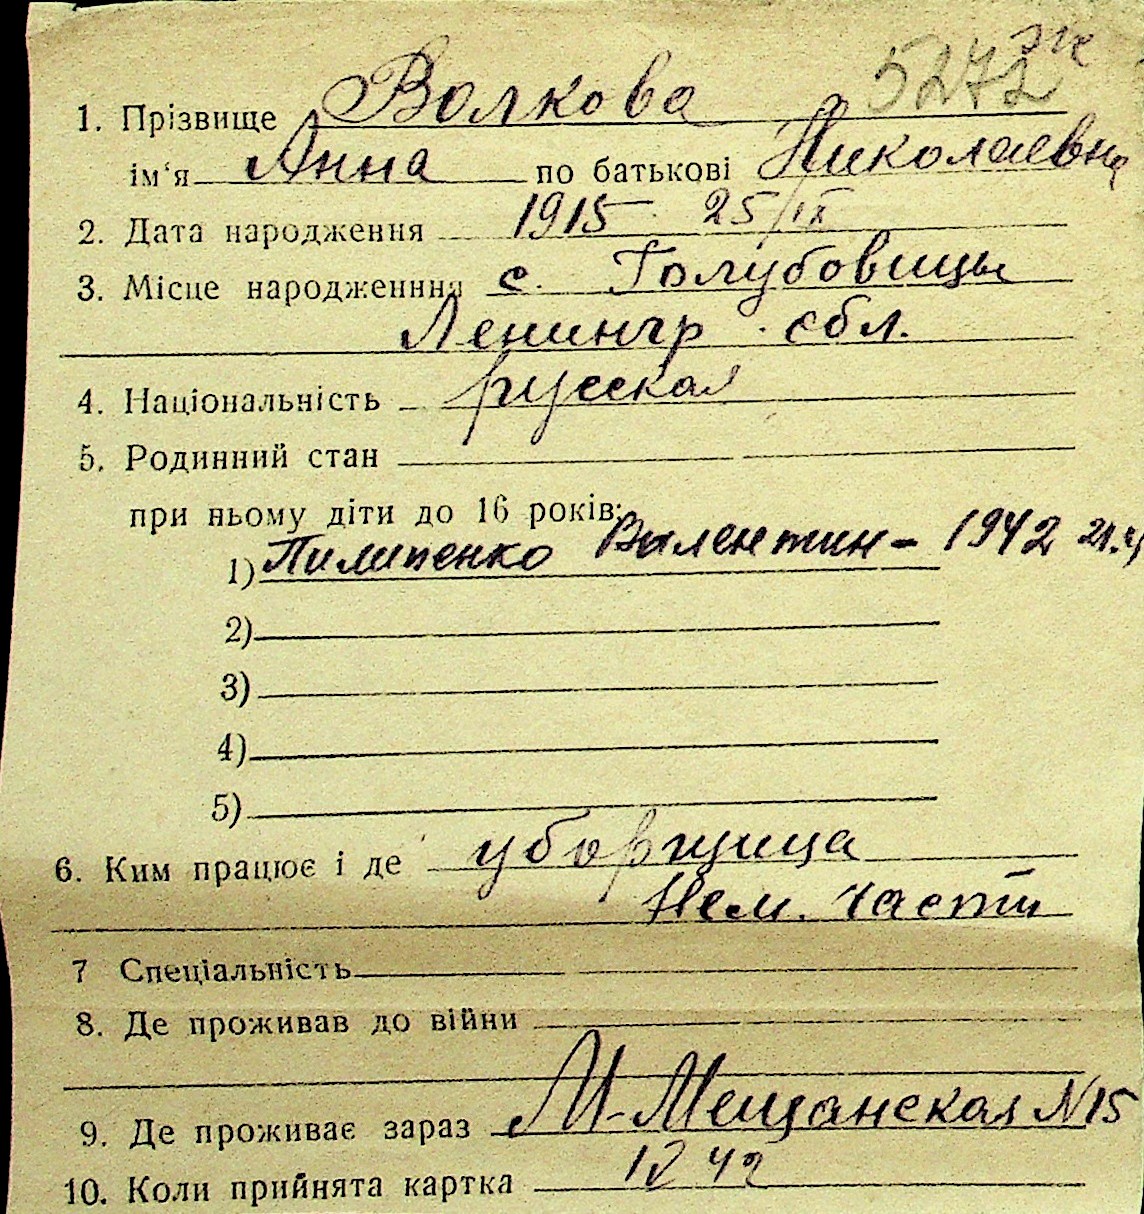 5272
1. Прізвище Волкова
ім'я Анна по батькові Николаевна
2. Дата народження 1915 25/IX
3. Місце народженння с. Голубовицы
Ленингр. обл.
4. Національність русская
5. Родинний стан
при ньому діти до 16 років:
1) Пилипенко Валентин - 1942
2)
3)
4)
5)
6. Ким працює і де уборщица
Нем. части
7 Спеціальність
8. Де проживав до війни
9. Де проживає зараз М-Мещанская N15
10. Коли прийнята картка